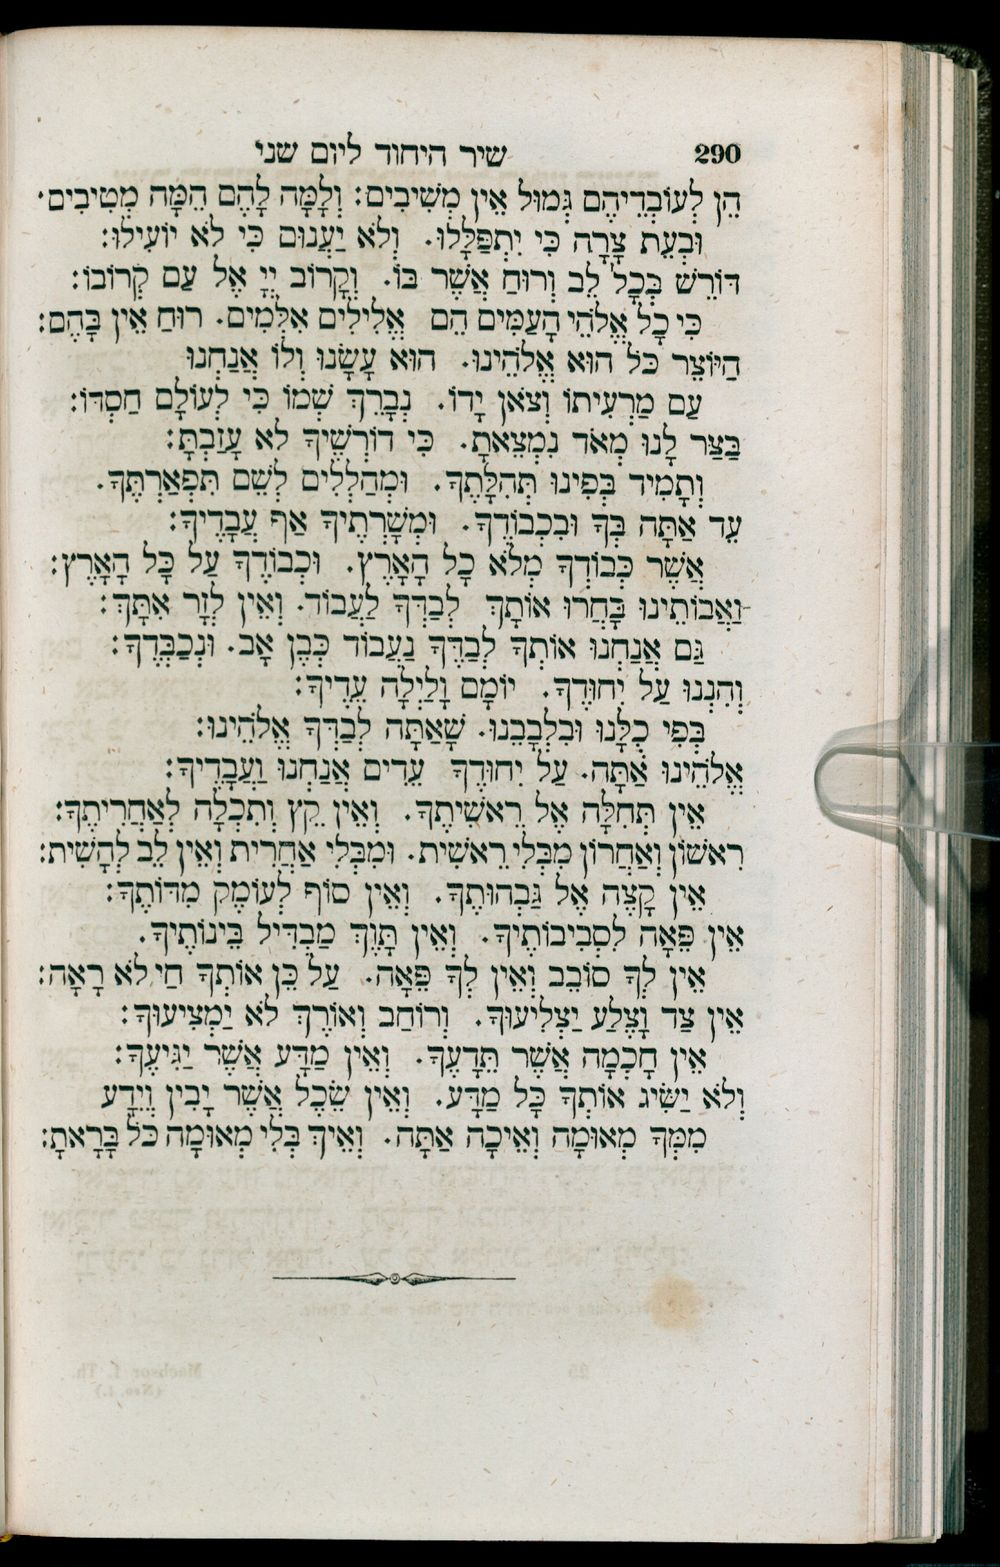 290 שיר היחוד ליום שני
הֵן לְעוֹבְדֵיהֶם גְּמוּל אֵין מְשִׁיבִים: וְלָמָּה לָהֶם הֵמָּה מְטִיבִים·
וּבְעֵת צָרָה כִּי יִתְפַּלָּלוּ. וְלֹא יַעֲנוּם כִּי לֹא יוֹעִילוּ:
דּוֹרֵשׁ בְּכָל לֵב וְרוּחַ אֲשֶׁר בּוֹ. וְקָרוֹב יְיָ אֶל עַם קְרוֹבוֹ:
כִּי כָל אֱלֹהֵי הָעַמִּים הֵם אֱלִילִים אִלְּמִים. רוּחַ אֵין בָּהֶם:
הַיּוֹצֵר כֹּל הוּא אֱלֹהֵינוּ. הוּא עָשָׂנוּ וְלוֹ אֲנַחְנוּ
עַם מַרְעִיתוֹ וְצֹאן יָדוֹ. נְבָרֵךְ שְׁמוֹ כִּי לְעוֹלָם חַסְדּוֹ:
בַּצַּר לָנוּ מְאֹד נִמְצֵאתָ. כִּי דוֹרְשֶׁיךָ לֹא עָזַבְתָּ:
וְתָמִיד בְּפִינוּ תְּהִלָּתֶךָ. וּמְהַלְלִים לְשֵׁם תִּפְאַרְתֶּךָ.
עֵד אַתָּה בְּךָ וּבִכְבוֹדֶךָ. וּמְשָׁרְתֶיךָ אַף עֲבָדֶיךָ:
אֲשֶׁר כְּבוֹדְךָ מְלֹא כָל הָאָרֶץ. וּכְבוֹדֶךָ עַל כָּל הָאָרֶץ:
וַאֲבוֹתֵינוּ בָּחֲרוּ אוֹתָךְ לְבַדְּךָ לַעֲבוֹד. וְאֵין לְזָר אִתָּךְ:
גַּם אֲנַחְנוּ אוֹתְךָ לְבַדֶּךָ נַעֲבוֹד כְּבֶן אָב. וּנְכַבְּדֶךָ:
וְהִנְנוּ עַל יִחוּדֶךָ. יוֹמָם וָלַיְלָה עֵדֶיךָ:
בְּפִי כֻלָּנוּ וּבִלְבָבֵנוּ. שָׁאַתָּה לְבַדְּךָ אֱלֹהֵינוּ:
אֱלֹהֵינוּ אַתָּה. עַל יִחוּדֶךָ עֵדִים אֲנַחְנוּ וַעֲבָדֶיךָ:
אֵין תְּחִלָּה אֶל רֵאשִׁיתֶךָ. וְאֵין קֵץ וְתִכְלָה לְאַחֲרִיתֶךָ:
רִאשׁוֹן וְאַחֲרוֹן מִבְּלִי רֵאשִׁית. וּמִבְּלִי אַחֲרִית וְאֵין לֵב לְהָשִׁית:
אֵין קָצֶה אֶל גַּבְהוּתֶךָ. וְאֵין סוֹף לְעוֹמֶק מִדּוֹתֶךָ:
אֵין פֵּאָה לִסְבִיבוֹתֶיךָ. וְאֵין תָּוֶךְ מַבְדִּיל בֵּינוֹתֶיךָ.
אֵין לְךָ סוֹבֵב וְאֵין לְךָ פֵּאָה. עַל כֵּן אוֹתְךָ חַי לֹא רָאָה:
אֵין צַד וָצֶלַע יַצְלִיעוּךָ. וְרוֹחַב וְאוֹרֶךְ לֹא יַמְצִיעוּךָ:
אֵין חָכְמָה אֲשֶׁר תֵּדָעֶךָ. וְאֵין מַדָּע אֲשֶׁר יַגִּיעֶךָ:
וְלֹא יַשִּׂיג אוֹתְךָ כָּל מַדָּע. וְאֵין שֵׂכֶל אֲשֶׁר יָבִין וְיֵדָע
מִמְּךָ מְאוּמָה וְאֵיכָה אַתָּה. וְאֵיךְ בְּלִי מְאוּמָה כֹּל בָּרָאתָ: